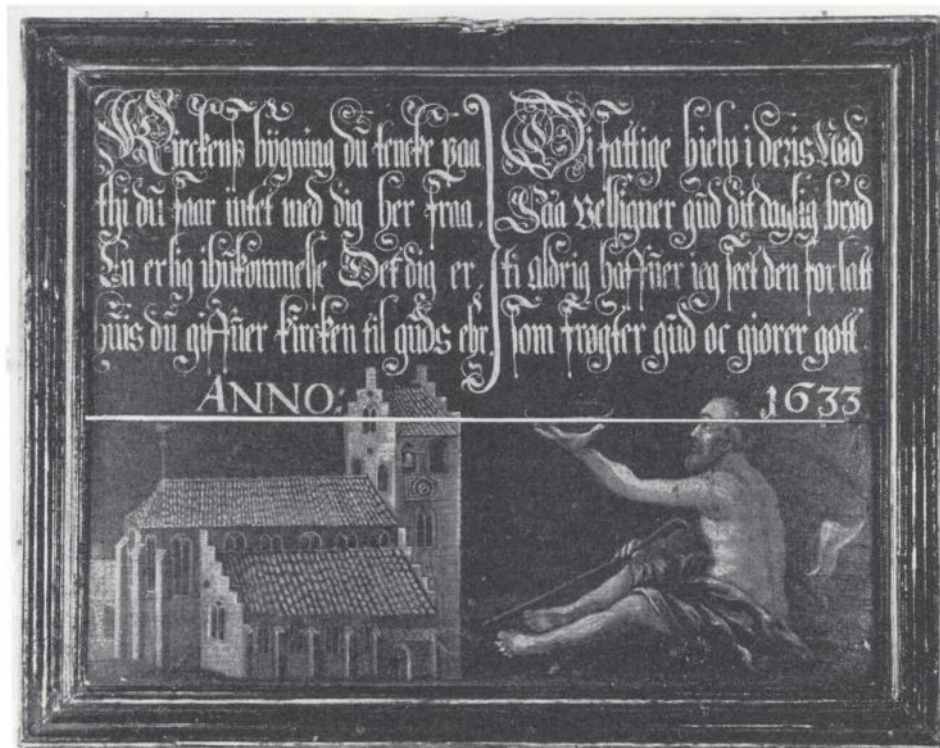 Kirckens bÿgning dŭ tencke paa
thj dŭ faar intet med dig her fraa.
En erlig ihŭkommelse Det dig er,
hŭis dŭ giffŭer kircken til gŭds ehr,
Di fattige hielp i deris Nød
Saa velsigner gŭd dit daglig brød
ti aldrig haffŭer ieg seet den forlatt
som frøgter gŭd oc giører gott.
ANNO: 1633